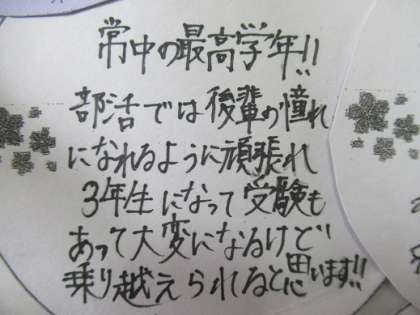 常中の最高学年!!
部活では後輩の憧れ
になれるように頑張れ
3年生になって受験も
あって大変になるけど
乗り越えられると思います!!